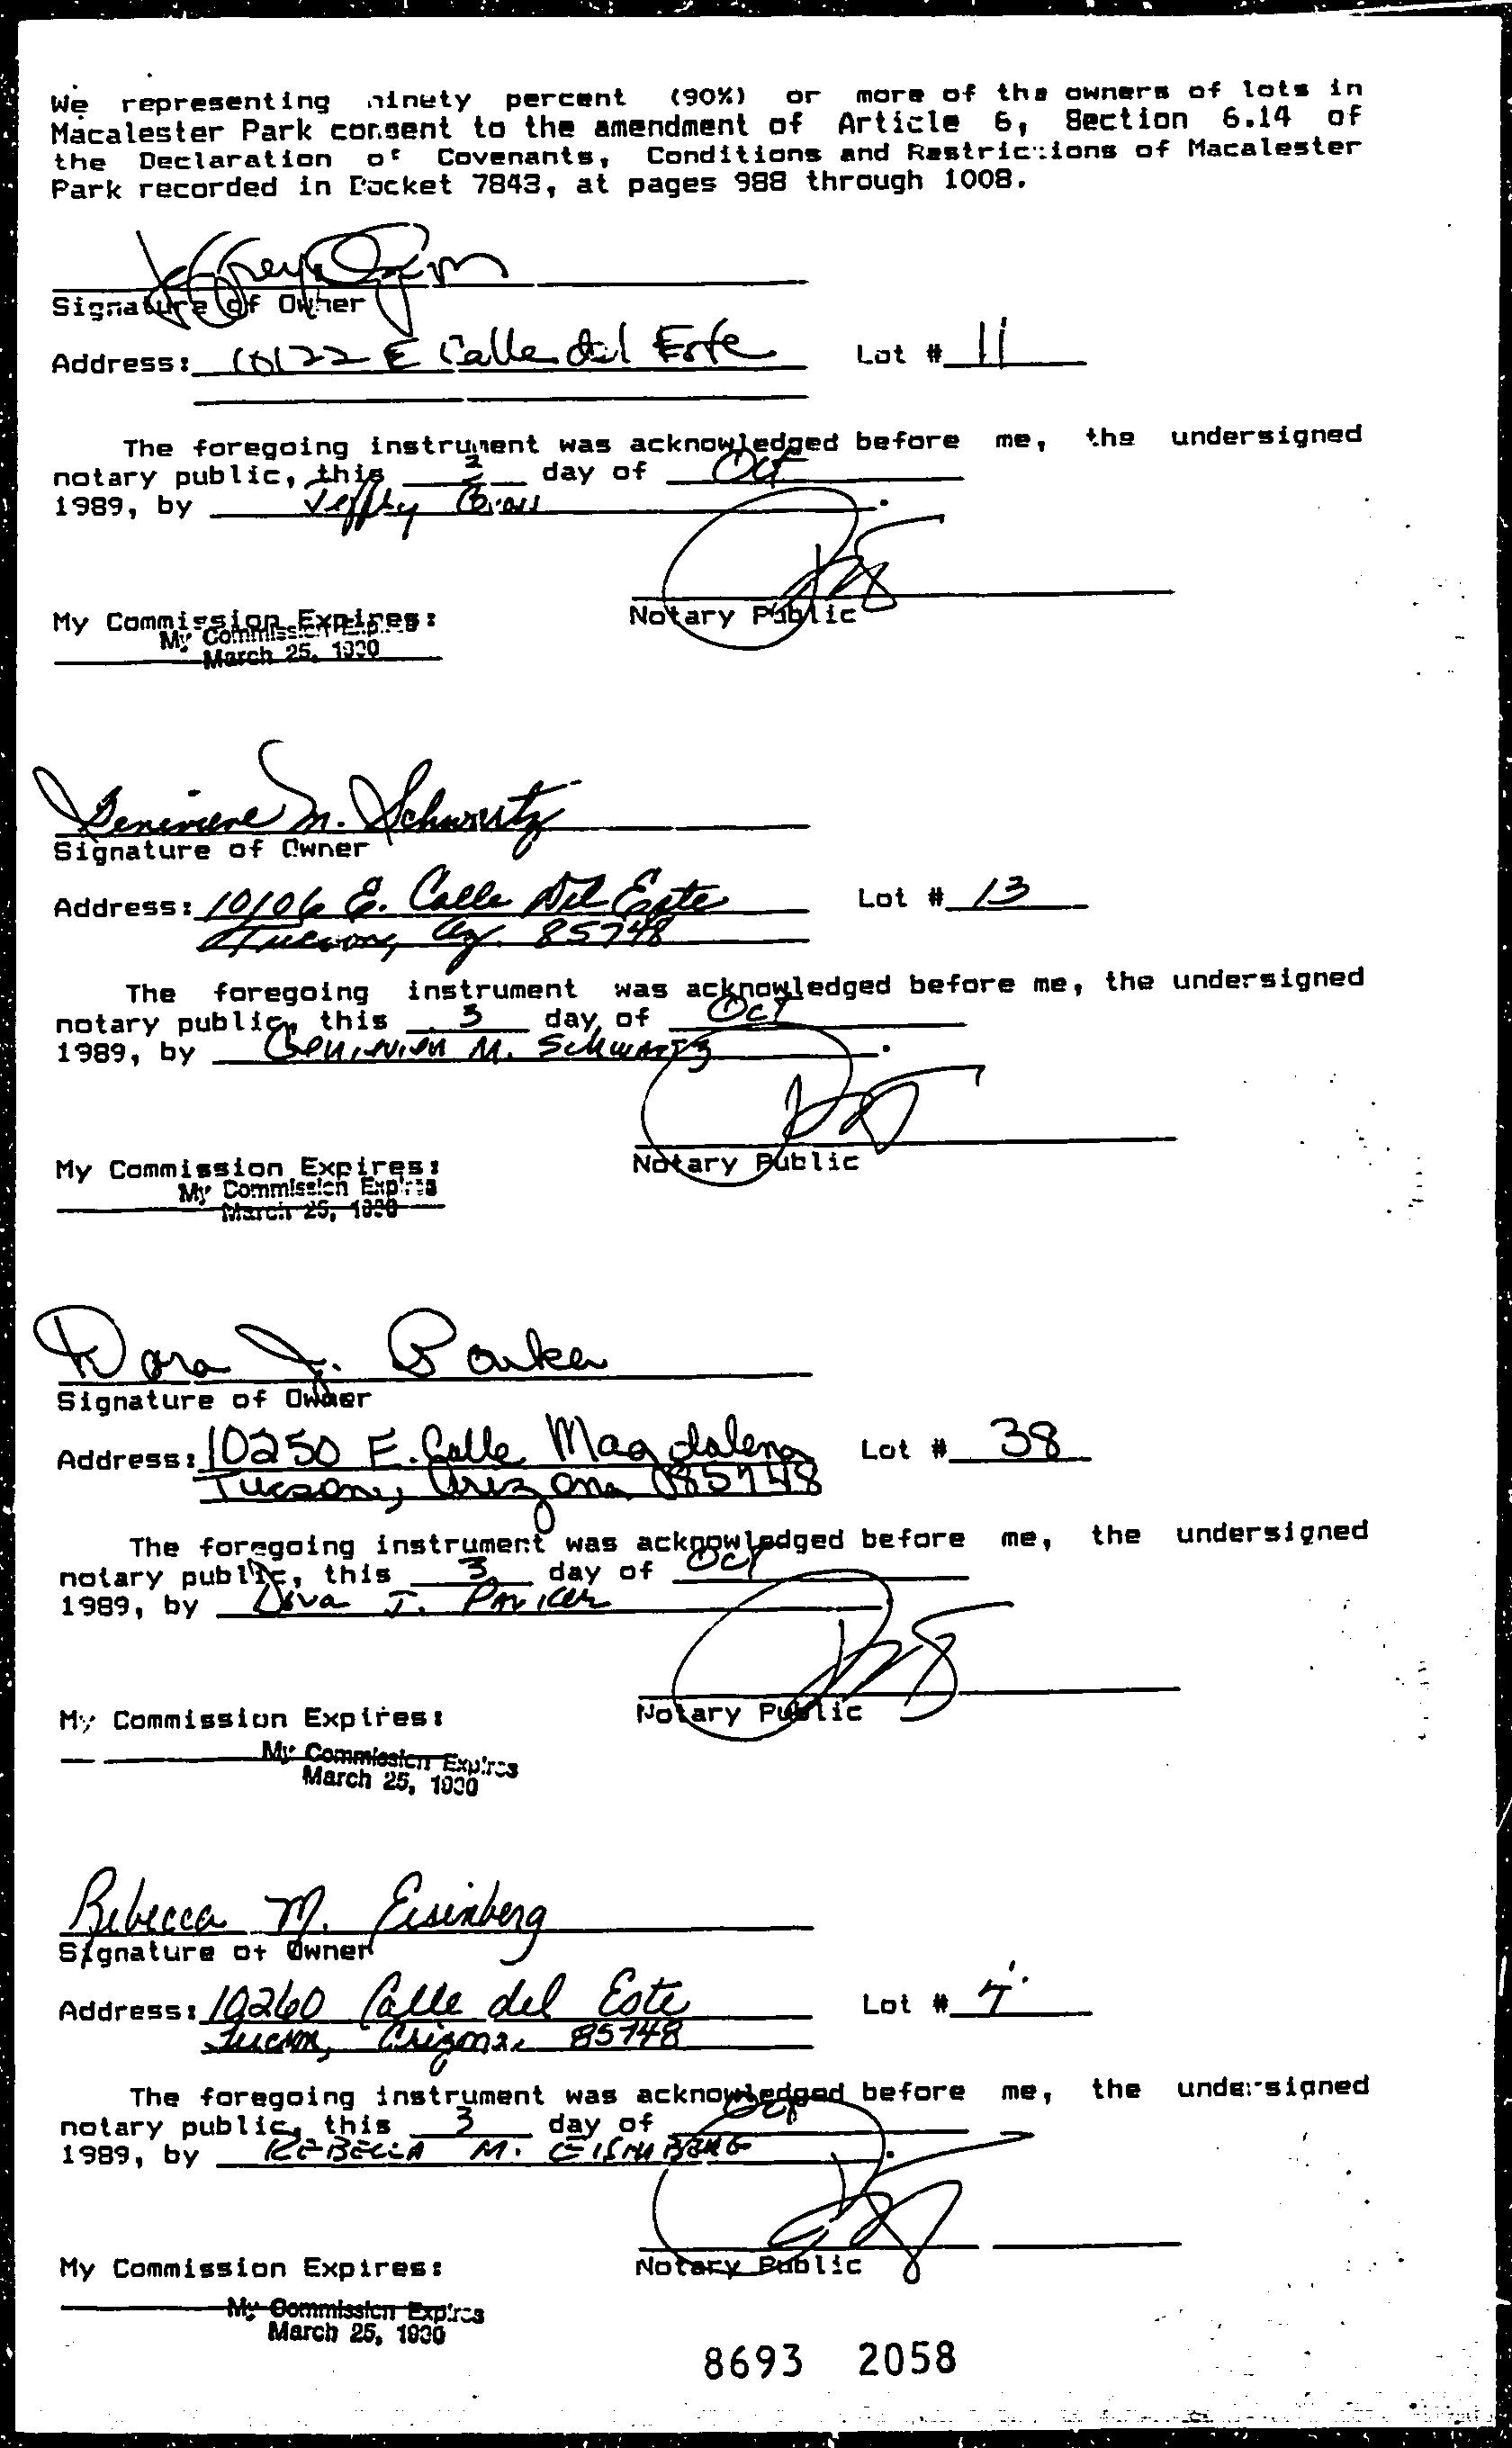 We representing ninety percent (90%) or more of the owners of lots in
Macalester Park consent to the amendment of Article 6, Section 6.14 of
the Declaration of Covenants, Conditions and Restrictions of Macalester
Park recorded in Docket 7843, at pages 988 through 1008.
Jeffrey
Signature of Owner
Address: 10122 E Calle del Este Lot # 11
The foregoing instrument was acknowledged before me, the undersigned
notary public, this 2 day of Oct
1989, by
Notary Public
My Commission Expires:
My Commission Expires
March 25, 1990
Genevieve M. Schwartz
Signature of Owner
Address: 10106 E. Calle Del Este Lot # 13
Tucson, Az. 85748
The foregoing instrument was acknowledged before me, the undersigned
notary public, this 3 day of Oct
1989, by Genevieve M. Schwartz
Notary Public
My Commission Expires:
My Commission Expires
March 25, 1990
Dora J. Parker
Signature of Owner
Address: 10250 E. Calle Magdalena Lot # 38
Tucson, Arizona 85748
The foregoing instrument was acknowledged before me, the undersigned
notary public, this 3 day of Oct
1989, by J. Parker
Notary Public
My Commission Expires:
My Commission Expires
March 25, 1990
Rebecca M. Eisenberg
Signature of Owner
Address: 10260 Calle del Este Lot # 4
Tucson, Arizona 85748
The foregoing instrument was acknowledged before me, the undersigned
notary public, this 3 day of Oct
1989, by REBECCA M. EISENBERG
Notary Public
My Commission Expires:
My Commission Expires
March 25, 1990
8693 2058